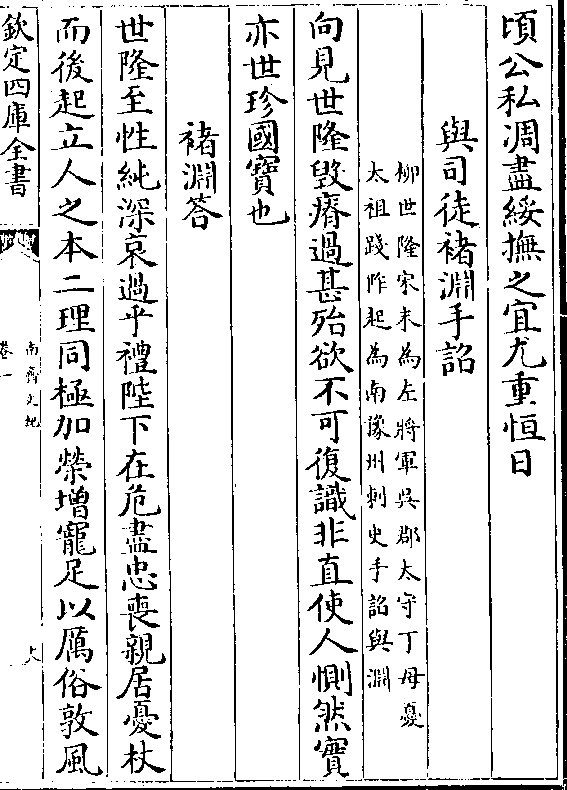 頃公私凋盡綏撫之宜尤重恒日
與司徒褚淵手詔
柳世隆宋末為左將軍吳郡太守丁母憂
太祖踐阼起為南豫州刺史手詔與淵
向見世隆毀瘠過甚殆欲不可復識非直使人惻然實
亦世珍國寶也
褚淵答
世隆至性純深哀過乎禮陛下在危盡忠喪親居憂杖
而後起立人之本二理同極加榮增寵足以厲俗敦風
欽定四庫全書
南齊文紀
卷一